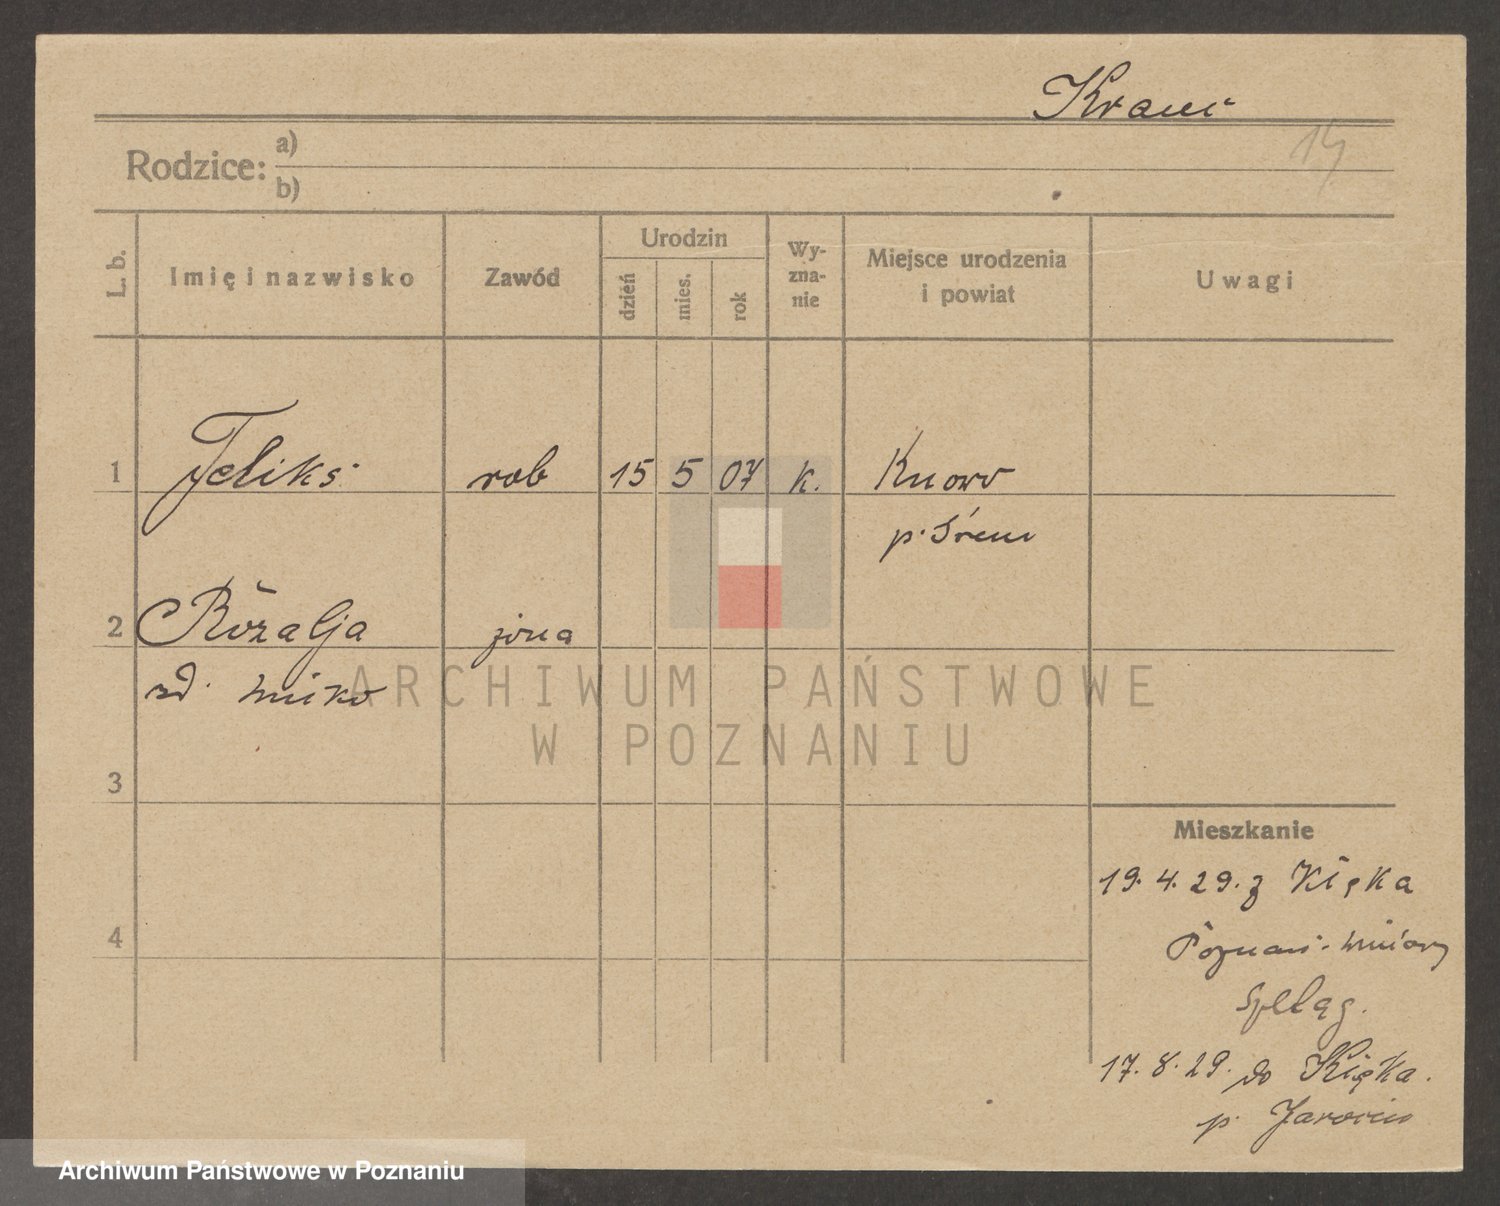 Krawi
14
Rodzice: a)
b)
L. b.
Imię i nazwisko
Zawód
Urodzin
dzień
mies.
rok
Wy-
zna-
nie
Miejsce urodzenia
i powiat
Uwagi
1 Feliks rob 15 5 07 k. Knowo
p. Śrem
2 Rózalja żona
zd.
3
4
Mieszkanie
19.4.29. z Kięka
Poznań - Winiary
Szeląg.
17.8.29. do Kięka.
p. Jarocin
ARCHIWUM PAŃSTWOWE
W POZNANIU
Archiwum Państwowe w Poznaniu